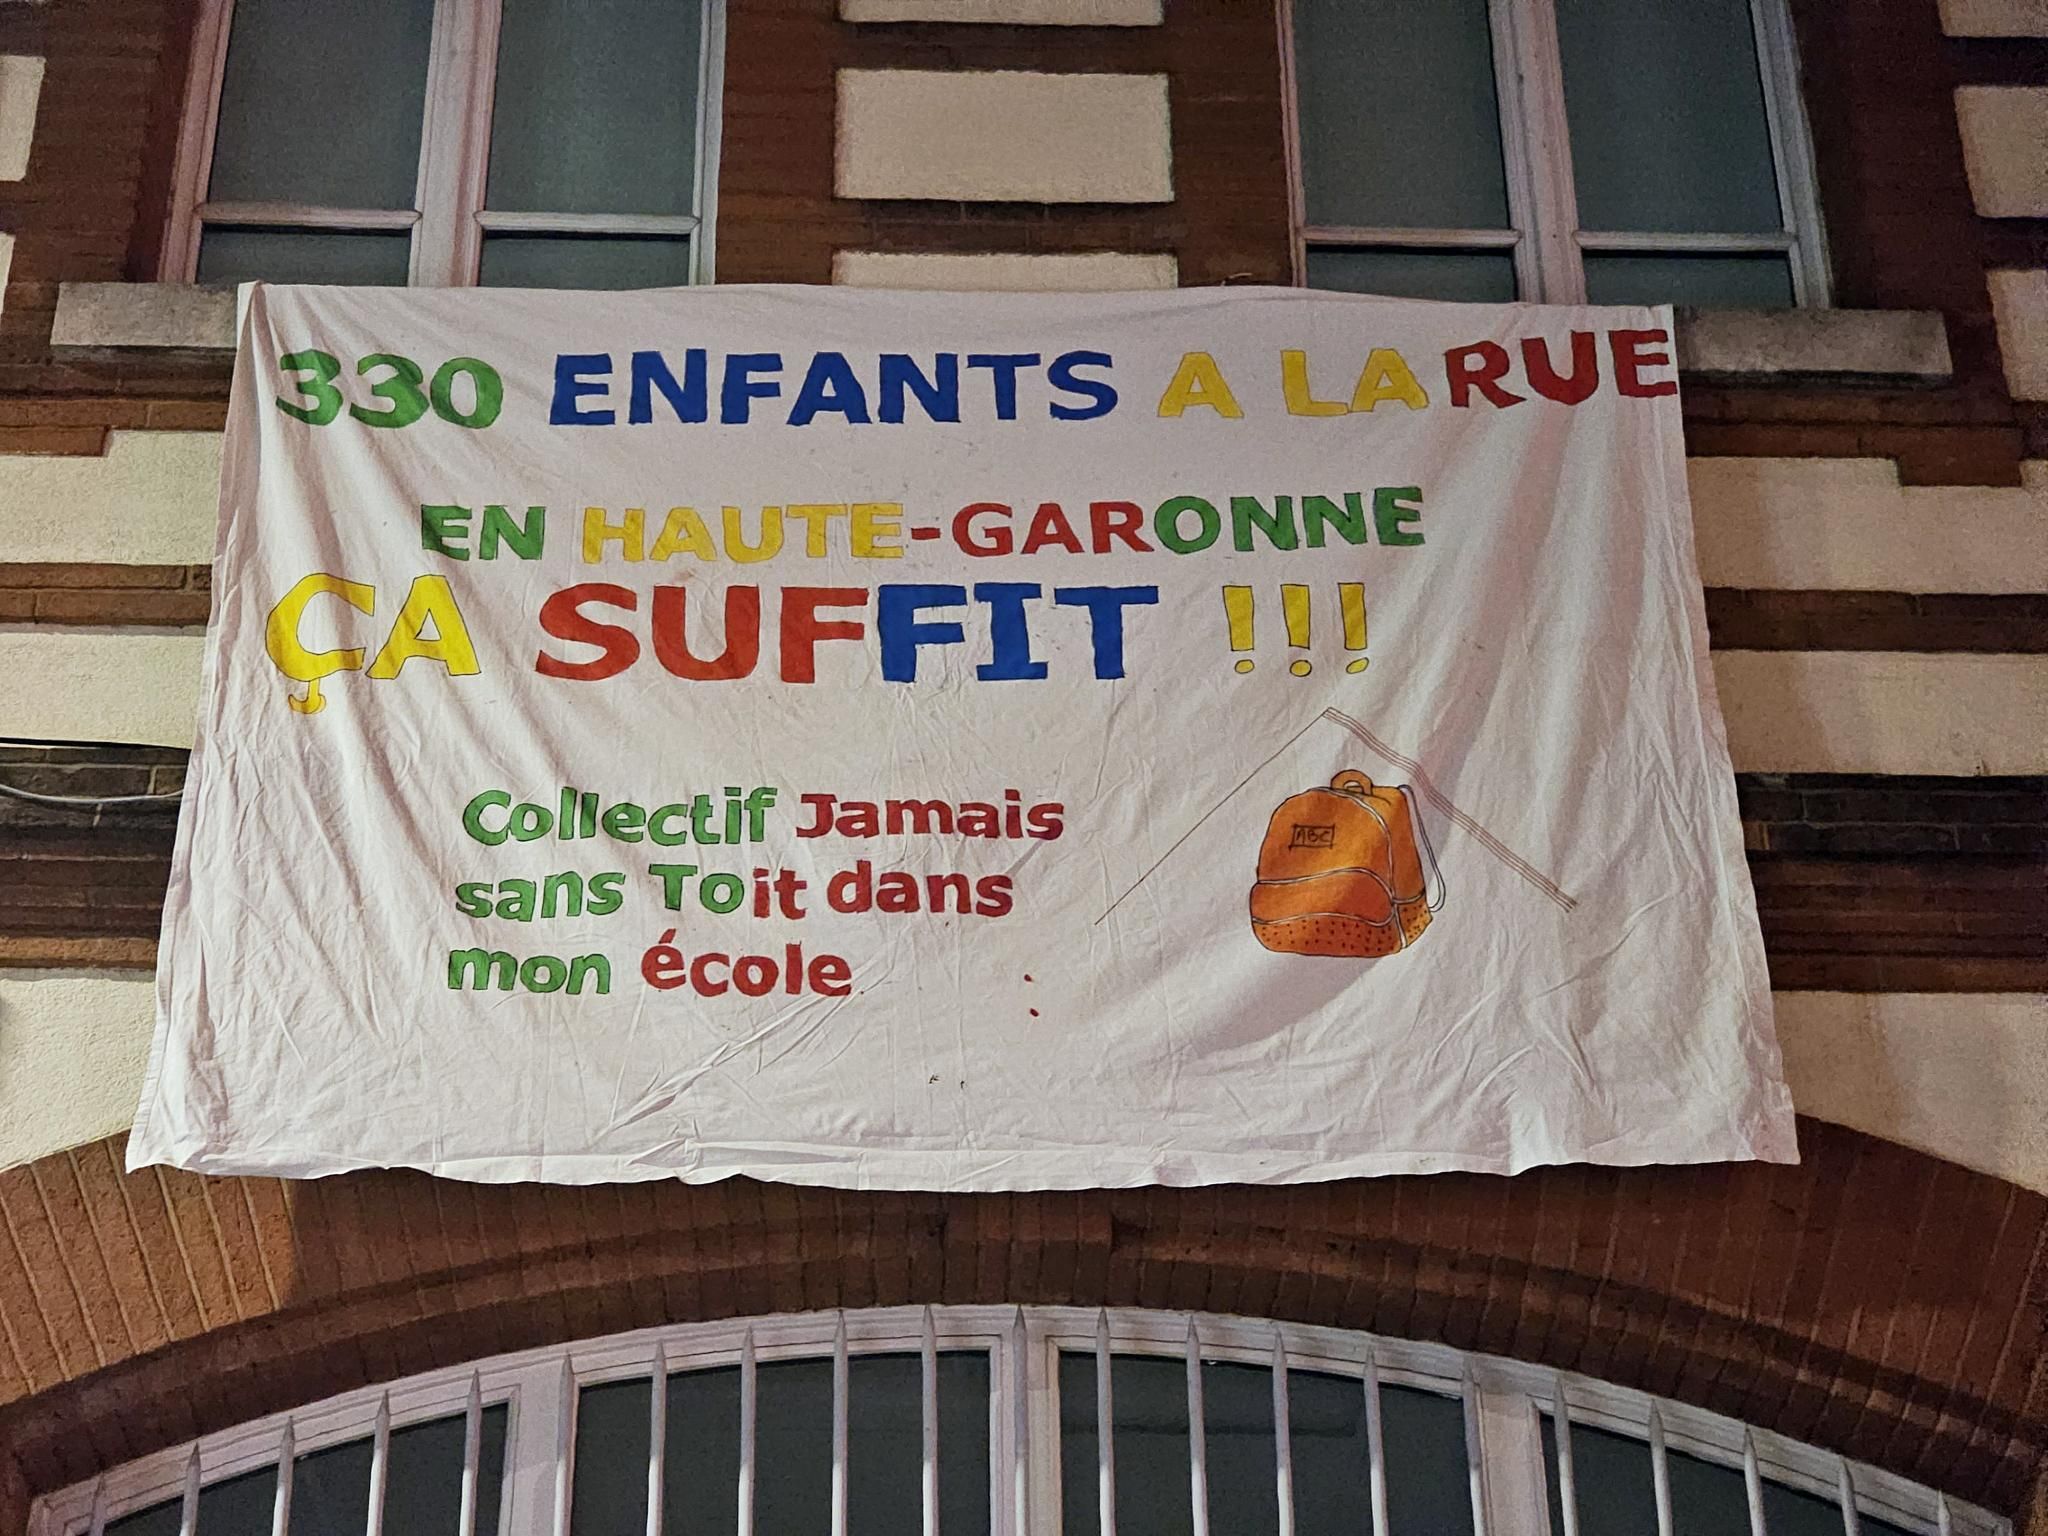 330 ENFANTS A LA RUE
EN HAUTE-GARONNE
ÇA SUFFIT !!!
Collectif Jamais
sans Toit dans
mon école
ABC